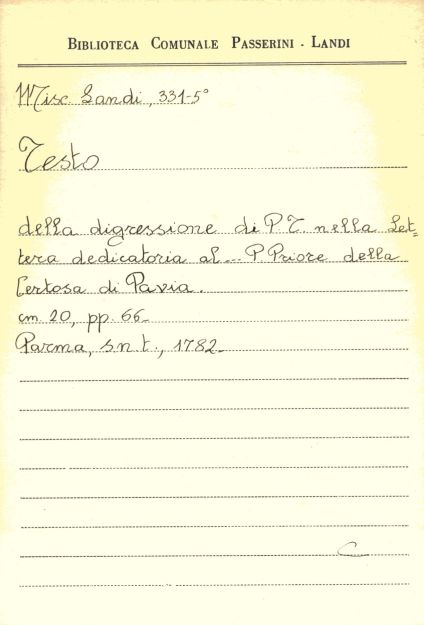 BIBLIOTECA COMUNALE PASSERINI - LANDI
Misc. Landi, 331-5°
Testo
della digressione di P. T. nella Let=
tera dedicatoria al... P. Priore della
Certosa di Pavia.
cm. 20, pp. 66.
Parma, s.n.t., 1782.
C